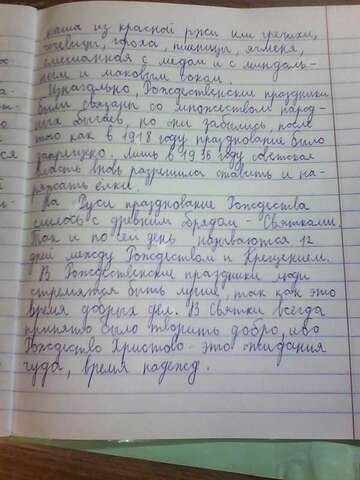 каша из красной ржи или гречихи,
чечевицы, гороха, пшеницы, ячменя,
смешанная с медом и с миндаль-
ным и маковым соком.
Изначально, Рождественские праздники
были связаны со множеством народ-
ных обычаев, но они забылись, после
того как в 1918 году празднование было
запрещено. Лишь в 1935 году советская
власть вновь разрешила ставить и на-
ряжать ёлки.
На Руси празднование Рождества
слилось с древним обрядом - Святками.
Так и по сей день называются 12
дней между Рождеством и Крещением.
В Рождественские праздники люди
стремятся быть лучше, так как это
время добрых дел. В Святки всегда
принято было творить добро, ибо
Рождество Христово - это ожидания
чуда, время надежд.